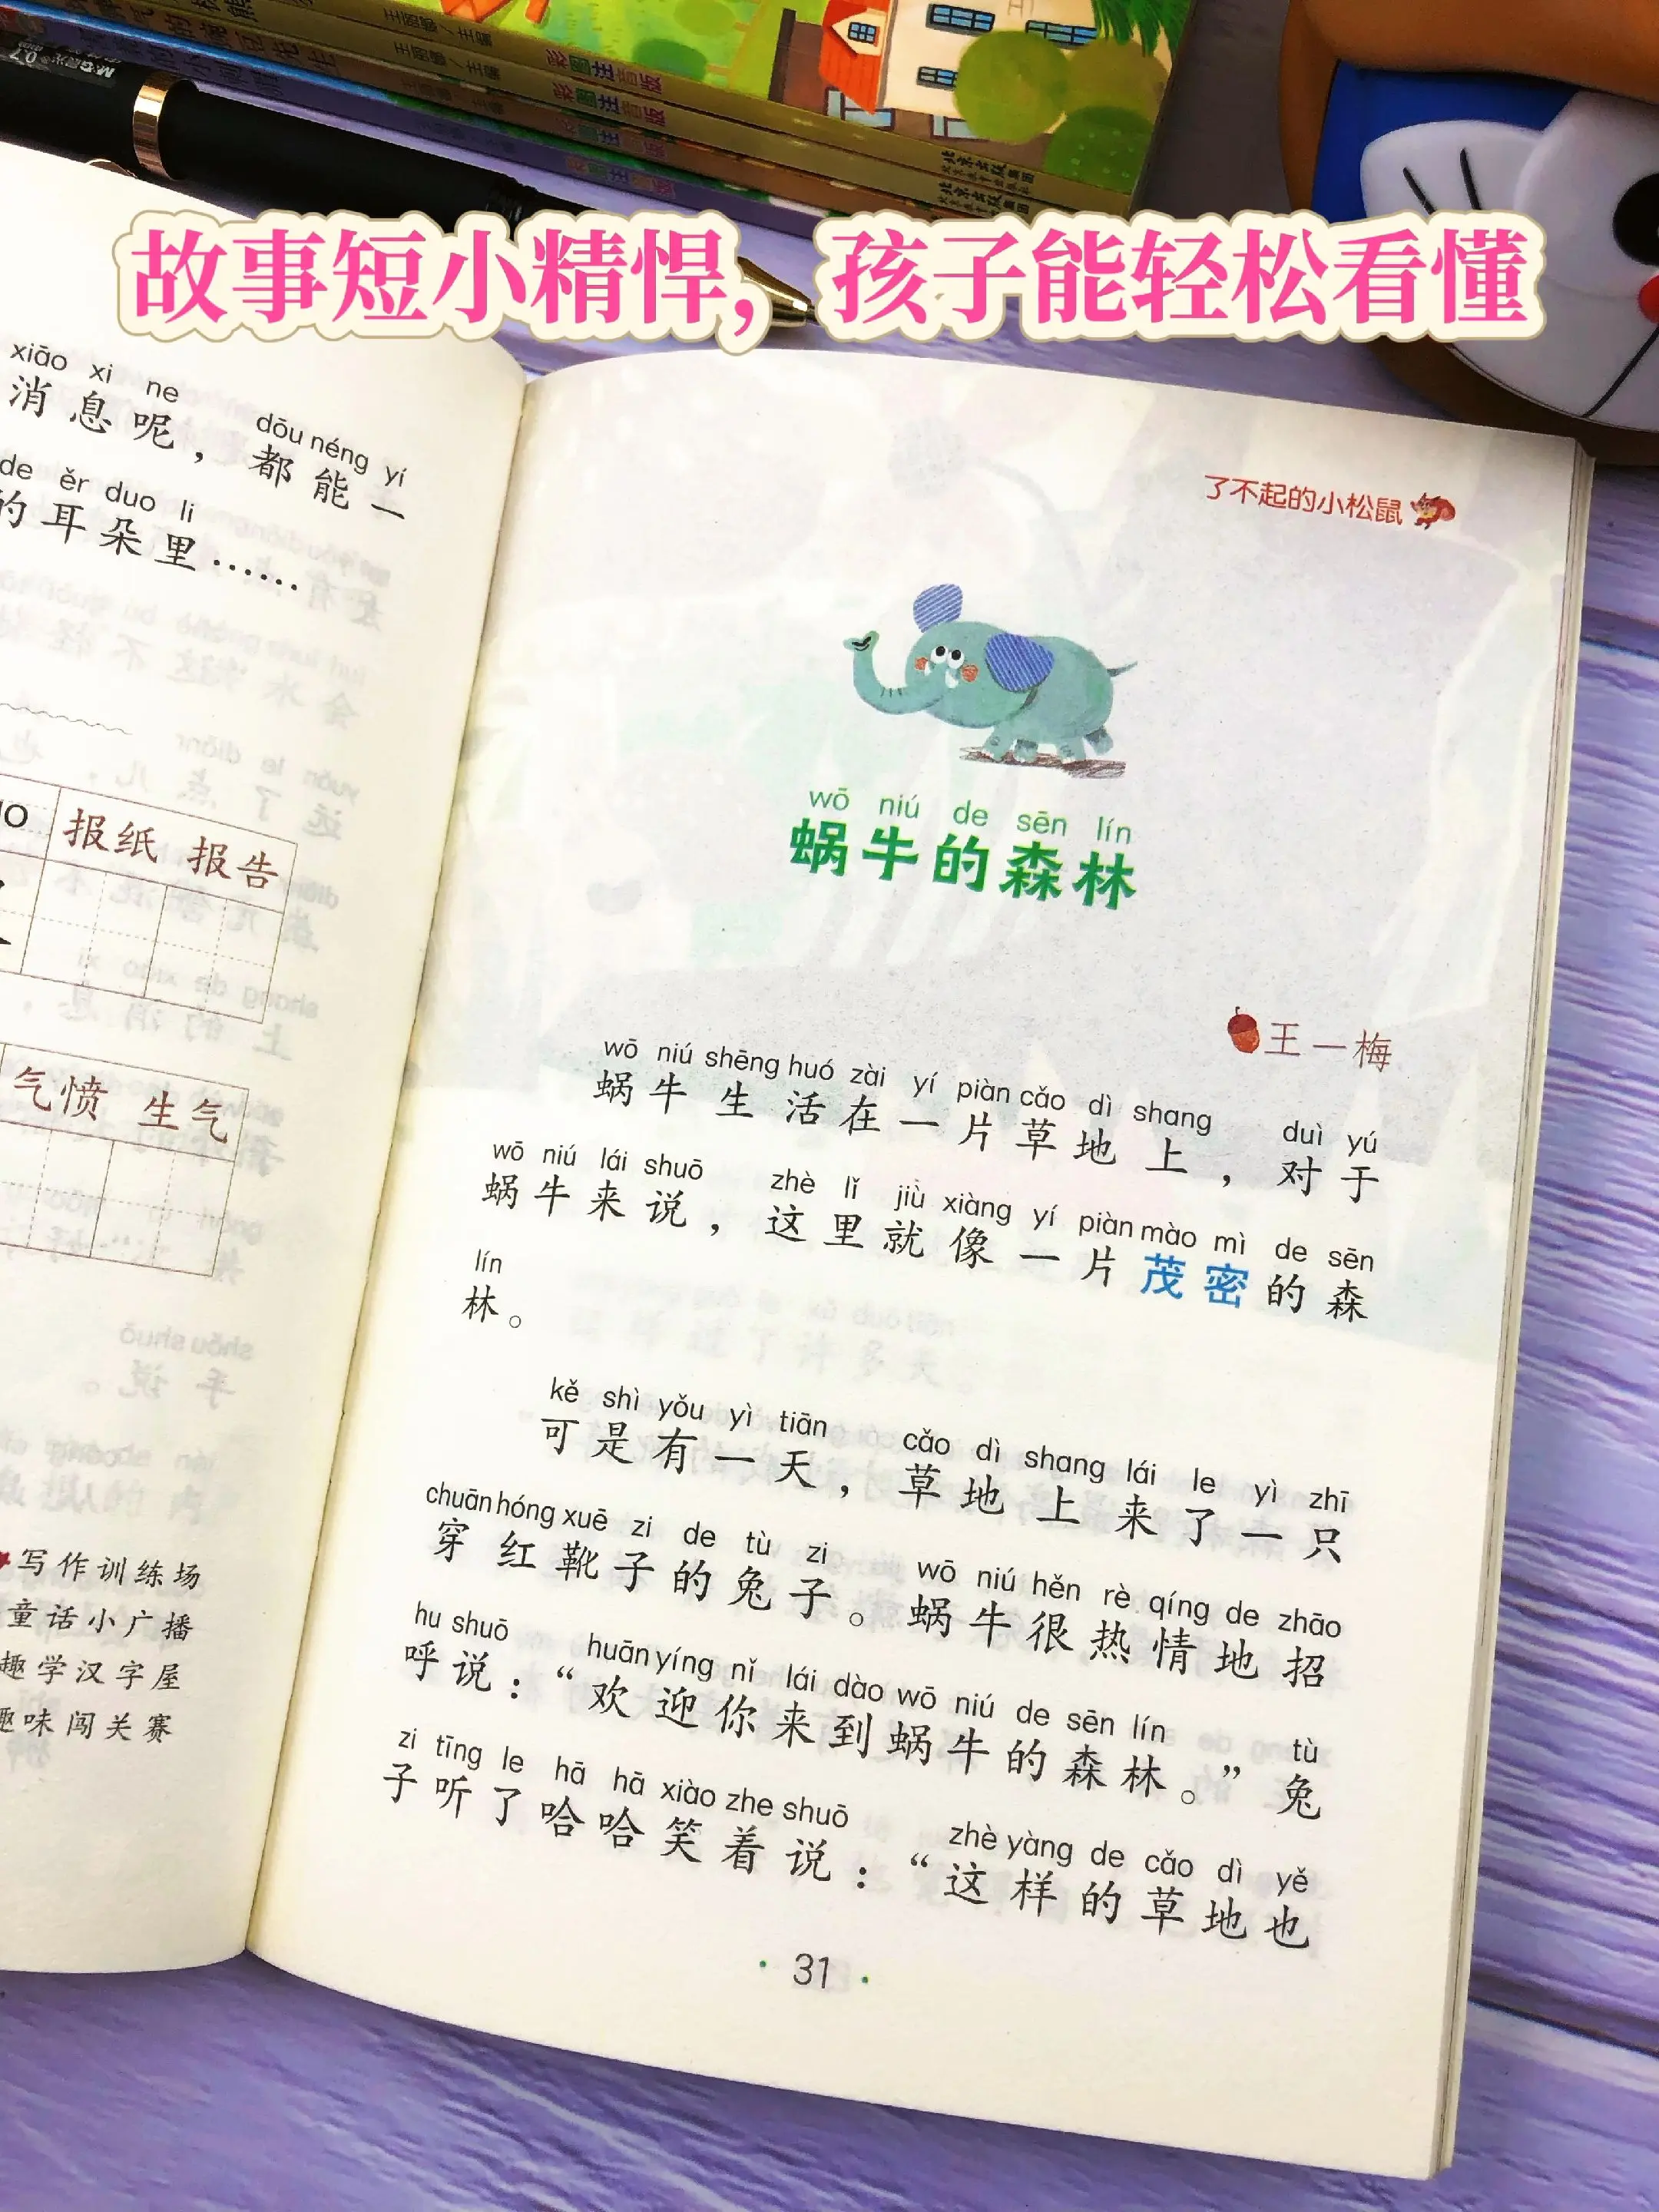 彩图注音版
彩图注音版
故事短小精悍，孩子能轻松看懂
xiāo xi ne dōu néng yí
消息呢，都能一
de ěr duo li
的耳朵里……
报纸 报告
气愤 生气
写作训练场
童话小广播
趣学汉字屋
趣味闯关赛
了不起的小松鼠
wō niú de sēn lín
蜗牛的森林
王一梅
wō niú shēng huó zài yí piàn cǎo dì shang duì yú
蜗牛生活在一片草地上，对于
wō niú lái shuō zhè lǐ jiù xiàng yí piàn mào mì de sēn
蜗牛来说，这里就像一片茂密的森
lín
林。
kě shì yǒu yì tiān cǎo dì shang lái le yì zhī
可是有一天，草地上来了一只
chuān hóng xuē zi de tù zi wō niú hěn rè qíng de zhāo
穿红靴子的兔子。蜗牛很热情地招
hu shuō huān yíng nǐ lái dào wō niú de sēn lín tù
呼说：“欢迎你来到蜗牛的森林。”兔
zi tīng le hā hā xiào zhe shuō zhè yàng de cǎo dì yě
子听了哈哈笑着说：“这样的草地也
· 31 ·